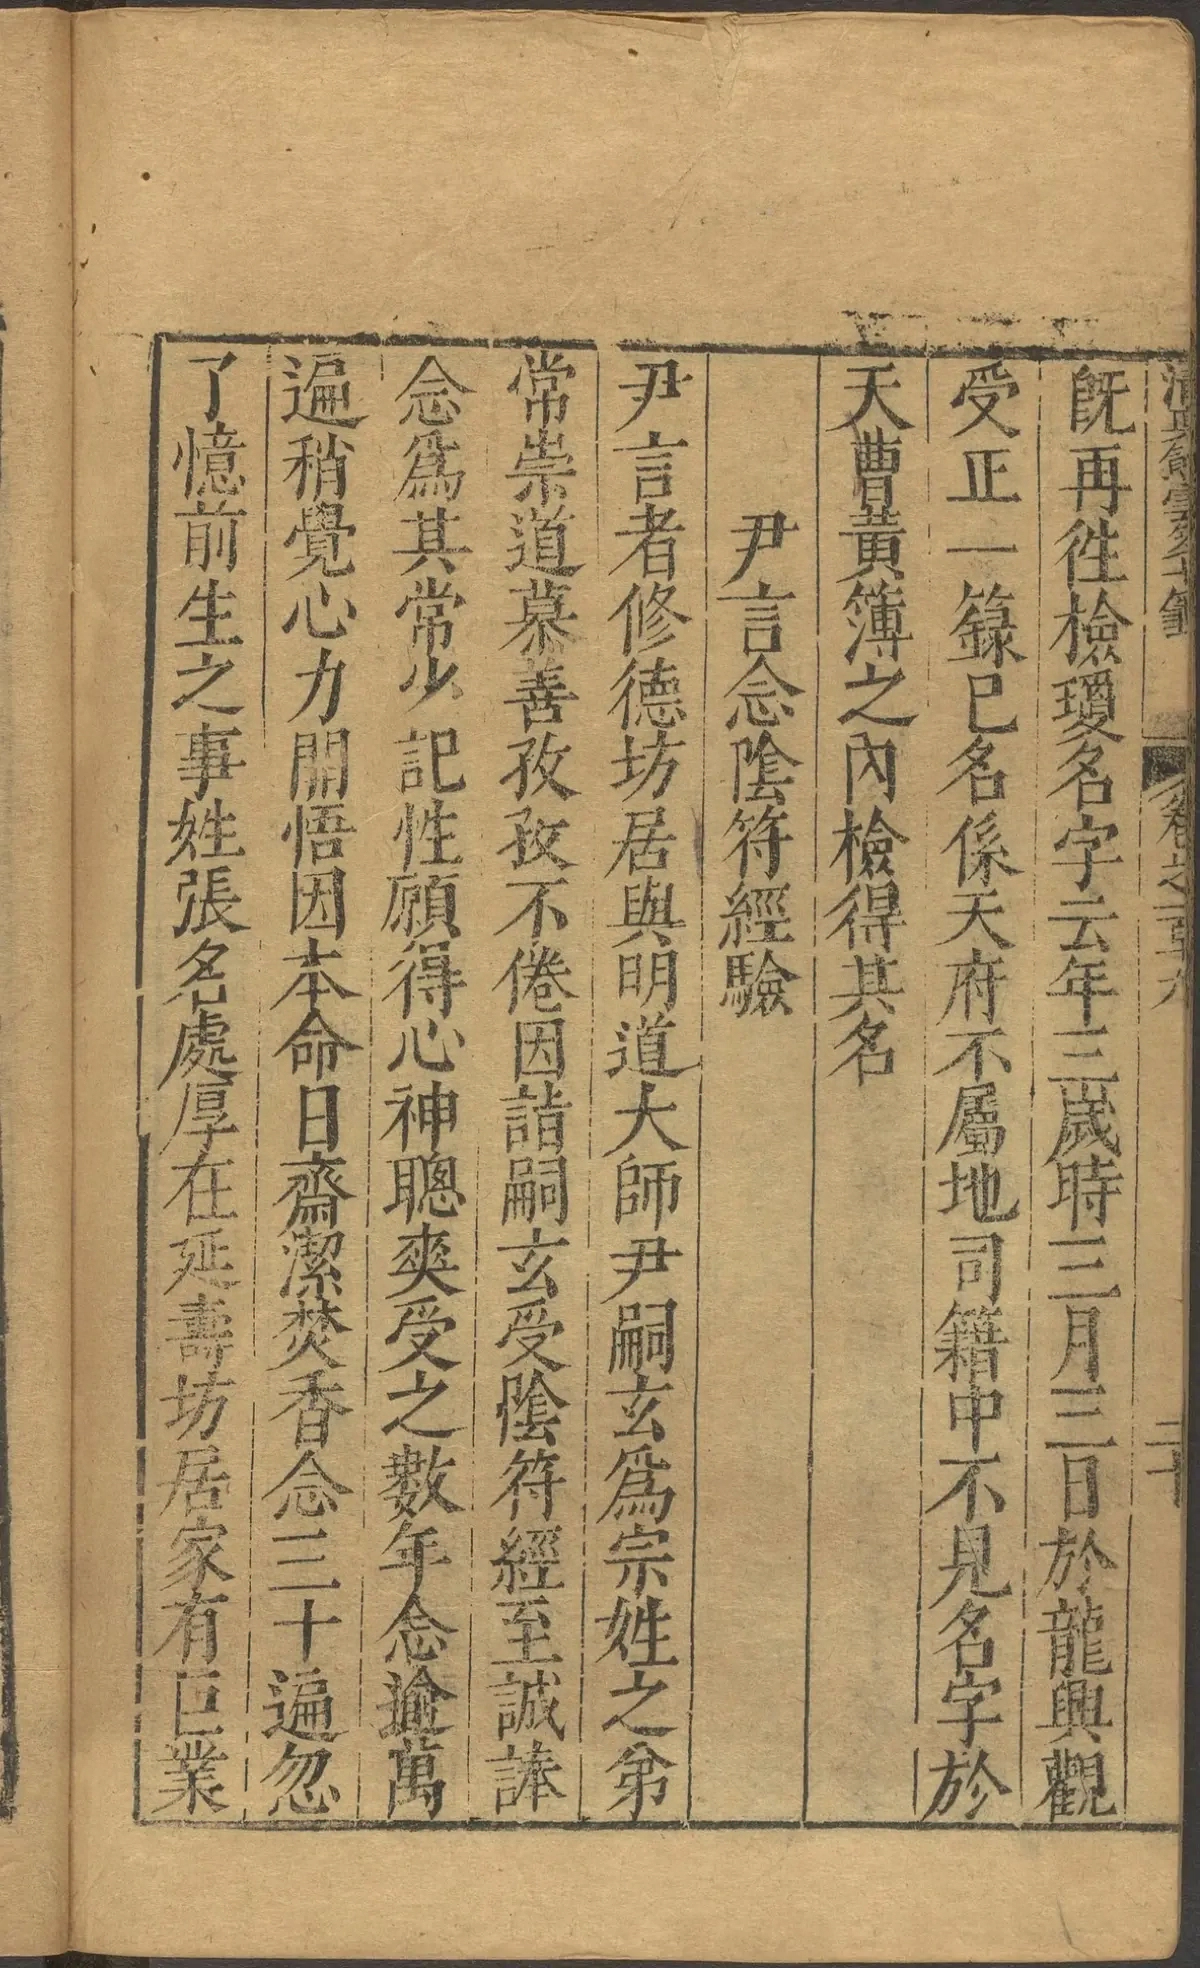 旣再徃檢瓊名字云年三歲時三月三日於龍興觀
受正一籙已名係天府不屬地司籍中不見名字於
天曹黃簿之內檢得其名
尹言念陰符經驗
尹言者修德坊居與明道大師尹嗣玄爲宗姓之弟
常崇道慕善孜孜不倦因詣嗣玄受陰符經至誠諱
念爲其常少記性願得心神聰爽受之數年念逾萬
遍稍覺心力開悟因本命日齋潔焚香念三十遍忽
了憶前生之事姓張名處厚在延壽坊居家有巨業